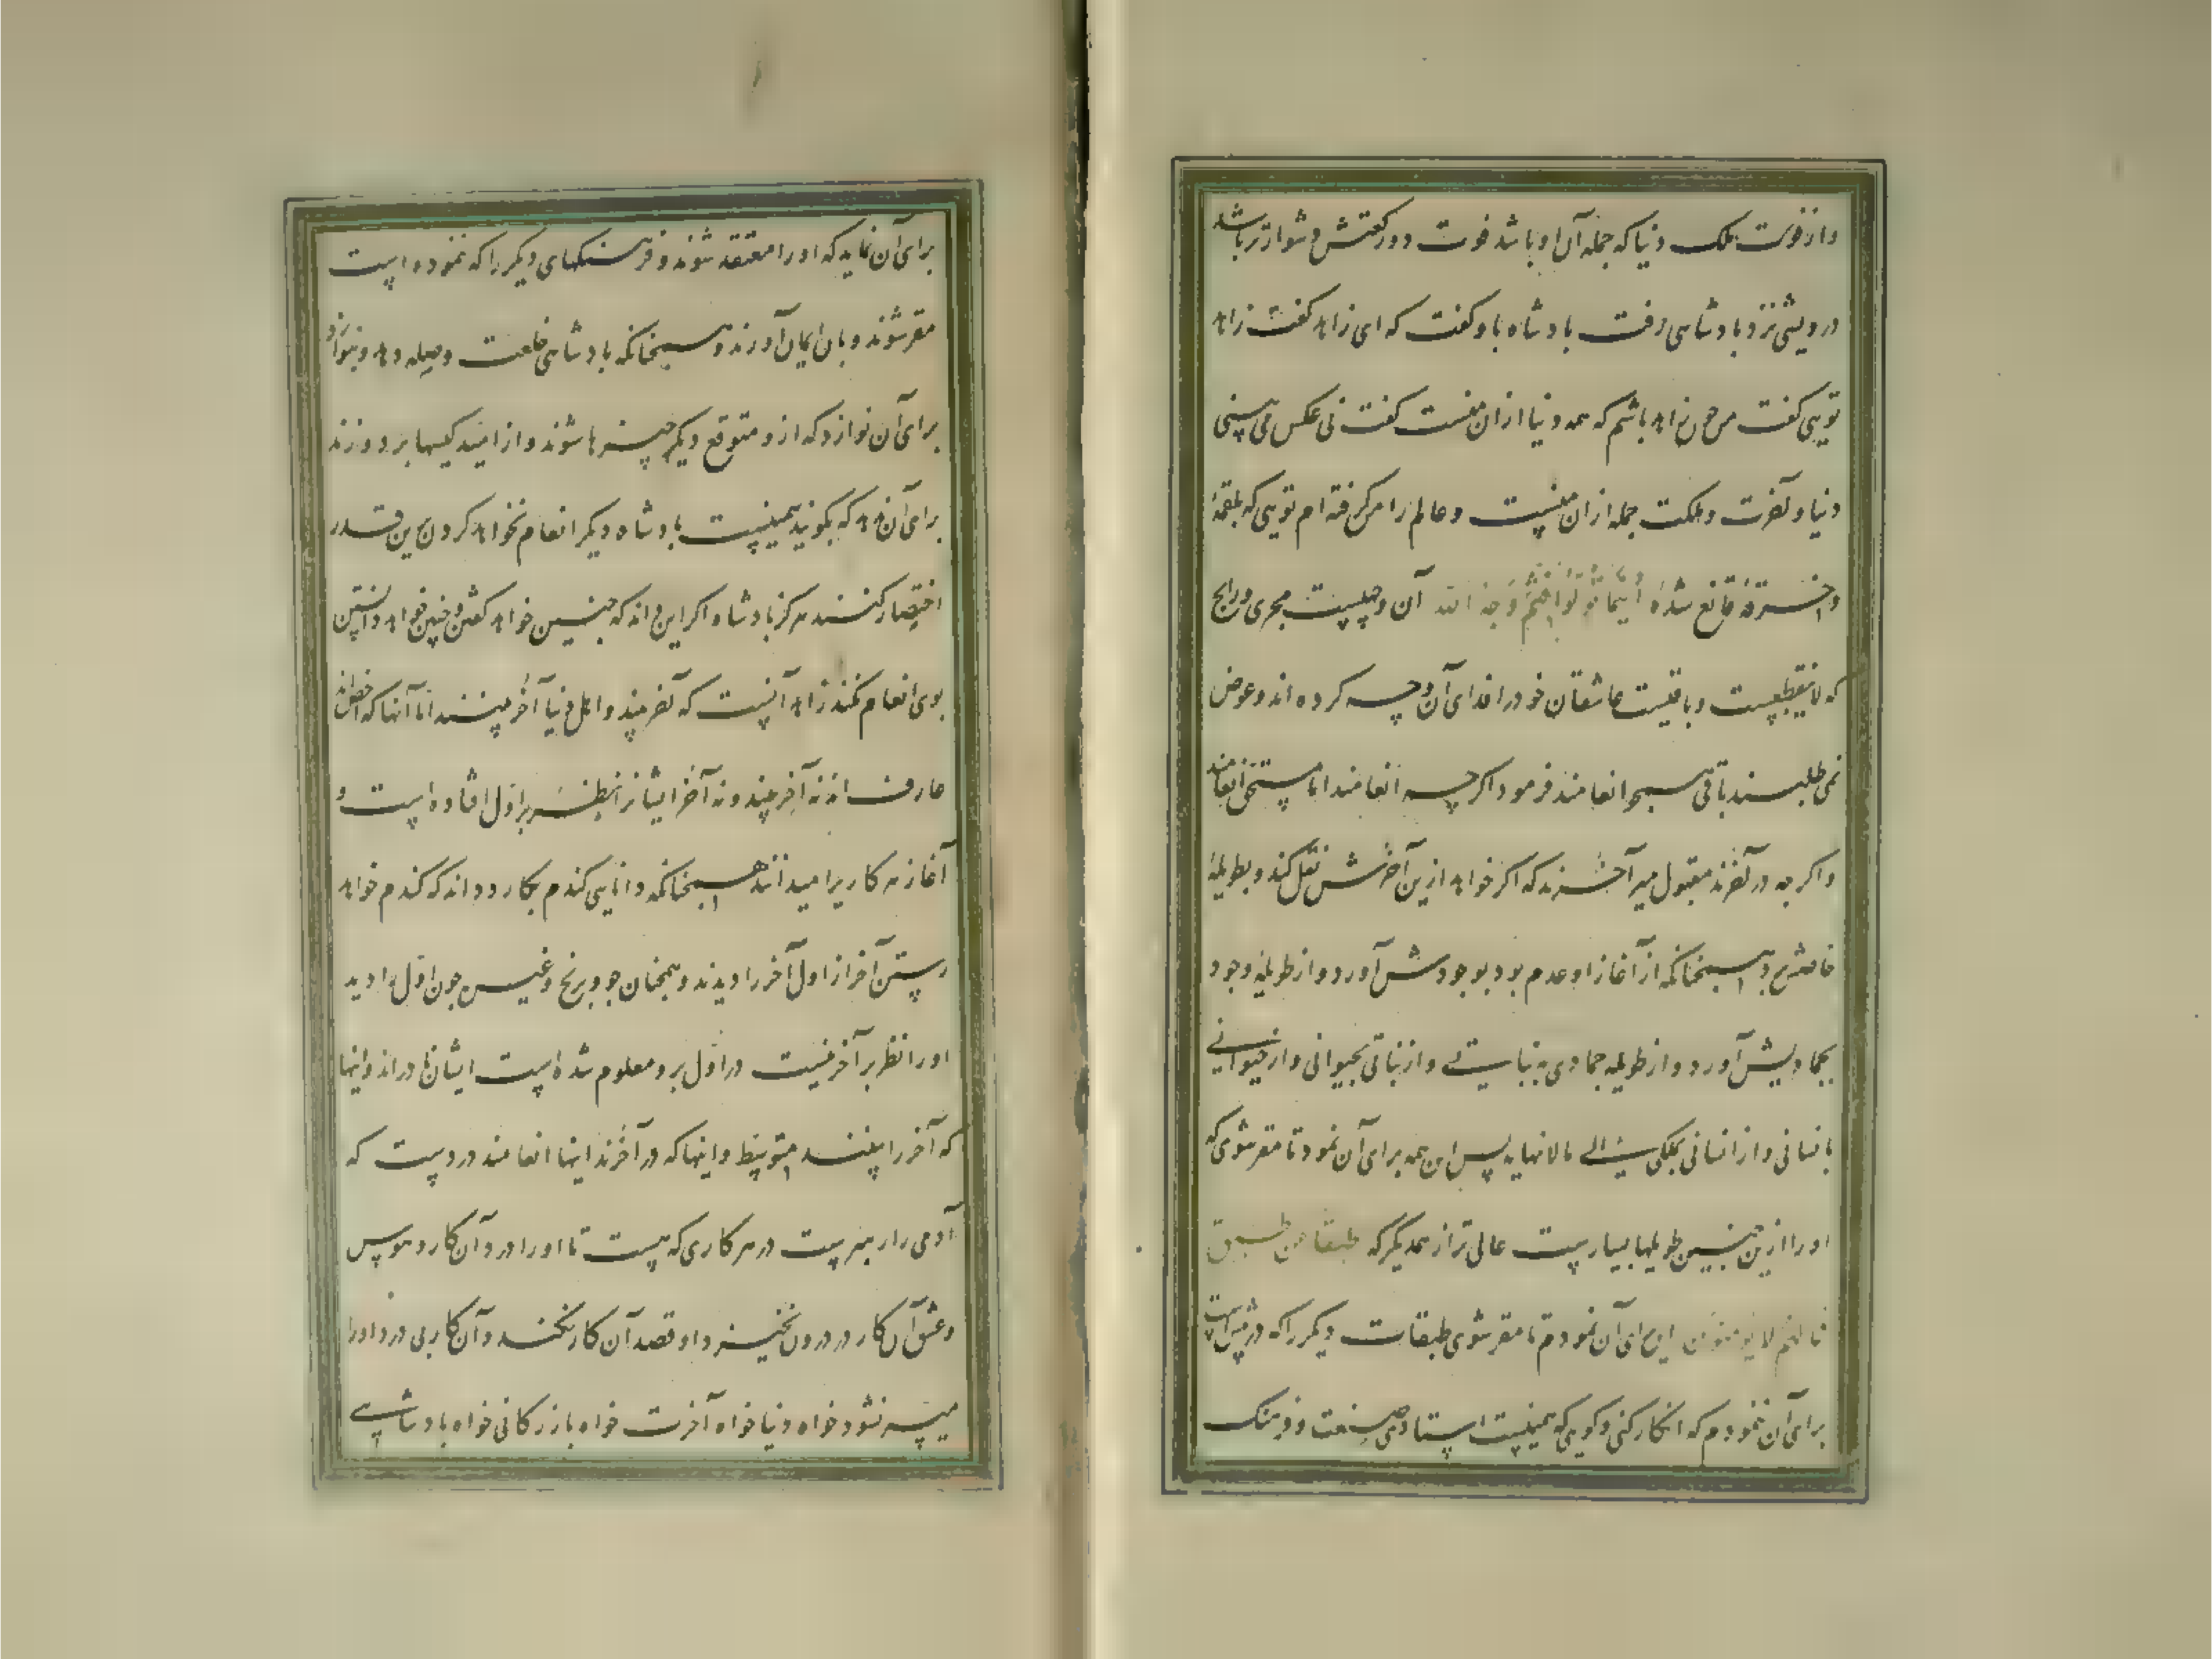 و از فوت ملک دنیا که جمله آن او باشد فوت دو رکعتش دشوارتر باشد
درویشی نزد پادشاهی رفت پادشاه باو کفت که ای زاهد کفت زاهد
تویی کفت من چون زاهد باشم که همه دنیا از ان منست کفت نی عکس می بینی
دنیا و آخرت و ملکت جمله از ان منست و عالم را من کرفته ام تویی که بلقمۀ
و خرقۀ قانع شدۀ أینما تولوا فثم وجه الله آن وجهیست مجری و رایج
که لاینقطعست و باقیست عاشقان خود را فدای آن وجه کرده اند و عوض
نمی طلبند باقی همچو انعامند فرمود اکرچه انعامند اما مستحق انعامند
و اکرچه در آخرند مقبول میر آخرند که اکر خواهد ازین آخرش نقل کند و بطویلۀ
خاصش برد همچنانکه از آغاز او عدم بود بوجودش آورد و از طویلۀ وجود
بجمادیش آورد و از طویلۀ جمادی به نباتی و از نباتی بحیوانی و از حیوانی
بانسانی و از انسانی بملکی الی مالانهایه پس این همه برای آن نمود تا مقر شوی که
او را ازین جنس طویلها بسیارست عالی تر از همدیکر که طبقا عن طبق
فما لهم لا یؤمنون این برای آن نمودم تا مقر شوی طبقات دیکر را که در پیش است
برای آن ننمودم که انکار کنی و کویی که همینست استادی صنعت و فرهنک
برای آن نماید که او را معتقد شوند و فرهنکهای دیکر را که ننموده است
مقر شوند و بان ایمان آورند و همچنانکه پادشاهی خلعت و صله دهد و بنوازد
برای آن نوازد که ازو متوقع دیکر چیزها شوند و از امید کیسها بردوزند
برای آن ندهد که بکویند همینست پادشاه دیکر انعام نخواهد کردن برین قدر
اختصار کنند هرکز پادشاه اکر این داند که چنین خواهد کفتن و چنین خواهد دانستن
بوی انعام نکند زاهد آنست که آخر بیند و اهل دنیا آخر بینند اما آنها که اخص اند
عارف اند نه آخر بینند و نه آخر ایشانرا نظر بر اول افتاده است و
آغاز هر کار را میدانند همچنانکه دانایی کندم بکارد داند که کندم خواهد
رستن آخر از اول آخر را دیدند و همچنان جو و برنج و غیره چون اول را دید
او را نظر بر آخر نیست در اول برو معلوم شده است ایشان نادراند و اینها
که آخر را بینند متوسط و اینها که در آخرند اینها انعامند دردست که
آدمی را رهبرست در هر کاری که هست تا او را درد آن کار و هوس
و عشق آن کار در درون نخیزد او قصد آن کار نکند و آن کار بی درد او را
میسر نشود خواه دنیا خواه آخرت خواه بازرکانی خواه پادشاهی